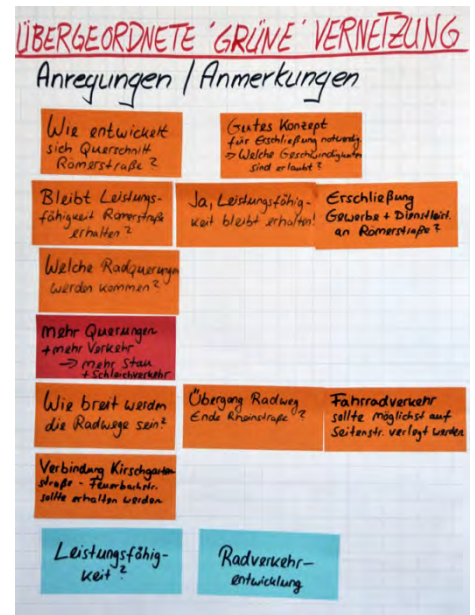 ÜBERGEORDNETE 'GRÜNE' VERNETZUNG
Anregungen / Anmerkungen
Wie entwickelt
sich Querschnitt
Römerstraße?
Gutes Konzept
für Erschließung notwendig
→ Welche Geschwindigkeiten
sind erlaubt?
Bleibt Leistungs-
fähigkeit Römerstraße
erhalten?
Ja, Leistungsfähig-
keit bleibt erhalten!
Erschließung
Gewerbe + Dienstleist.
an Römerstraße?
Welche Radquerungen
werden kommen?
mehr Querungen
+ mehr Verkehr
→ mehr Stau
+ Schleichverkehr
Wie breit werden
die Radwege sein?
Übergang Radweg
Ende Rheinstraße?
Fahrradverkehr
sollte möglichst auf
Seitenstr. verlegt werden
Verbindung Kirschgarten
straße - Feuerbachstr.
sollte erhalten werden
Leistungsfähig-
keit?
Radverkehr-
entwicklung